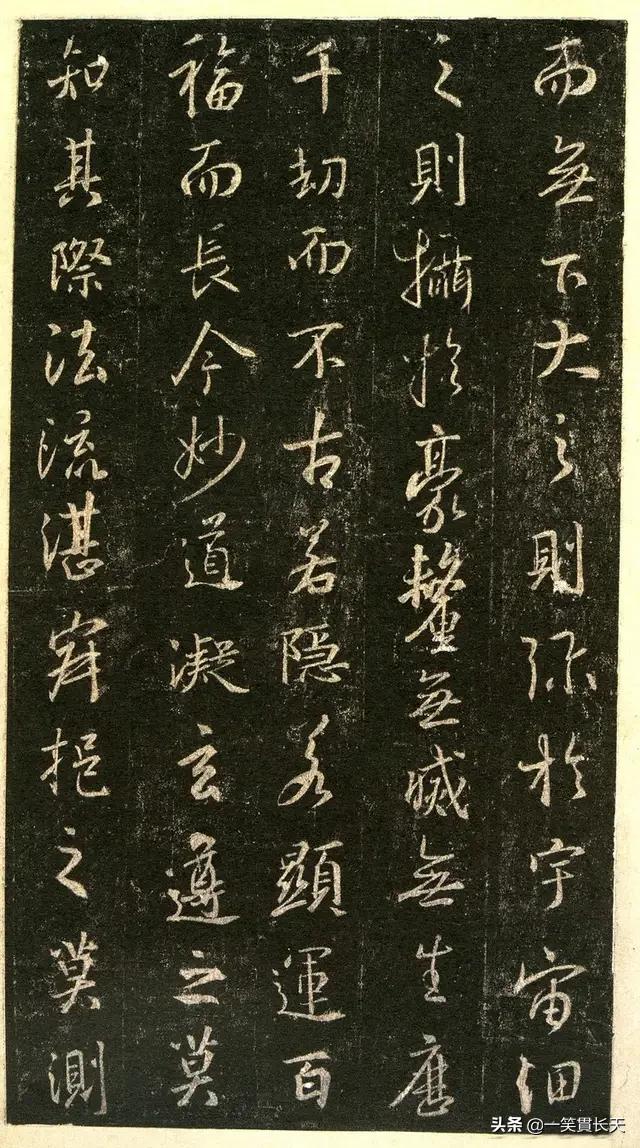 而無下大之則彌於宇宙細
之則攝於豪釐無滅無生歷
千劫而不古若隱若顯運百
福而長今妙道凝玄遵之莫
知其際法流湛寂挹之莫測
头条 @一笑貫长天